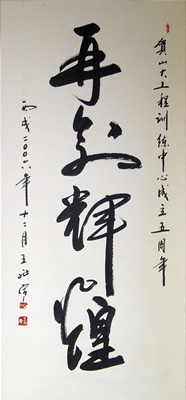 贺山大工程训练中心成立五周年
再创辉煌
丙戌二〇〇六年十二月王